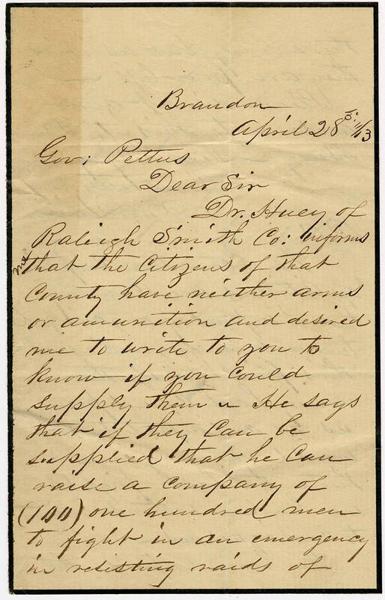 Brandon
April 28th /63
Gov: Pettus
Dear Sir
Dr. Huey of
Raleigh Smith Co: informs
me that the Citizens of that
County have neither arms
or amunition and desired
me to write to you to
know if you could
supply them. He says
that if they can be
supplied that he can
raise a company of
(100) one hundred men
to fight in an emergency
in resisting raids of